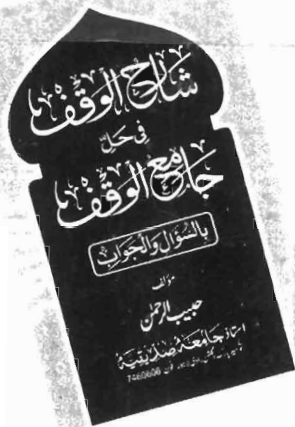 شارح الوقف
فی حل
جامع الوقف
بالسؤال والجواب
مؤلف
حبیب الرحمٰن
استاذ جامعہ صدیقیہ